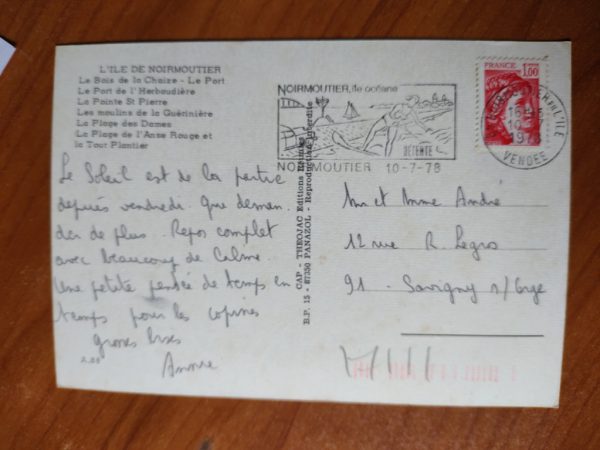 L'ILE DE NOIRMOUTIER
Le Bois de la Chaize - Le Port
Le Port de l'Herbaudière
La Pointe St Pierre
Les moulins de la Guérinière
La Plage des Dames
La Plage de l'Anse Rouge et
la Tour Plantier
Le Soleil est de la partie
depuis vendredi. que deman
der de plus. Repos complet
avec beaucoup de calme.
Une petite pensée de temps en
temps pour les copines
grosses bises
CAP - THEOJAC Editions Limoges
B.P. 15 - 87350 PANAZOL - Reproduction Interdite
NOIRMOUTIER, île océane
DETENTE
NOIRMOUTIER 10-7-78
FRANCE 1,00
VENDEE
Mr et Mme André
12 rue R. Legros
91 - Savigny s/Orge